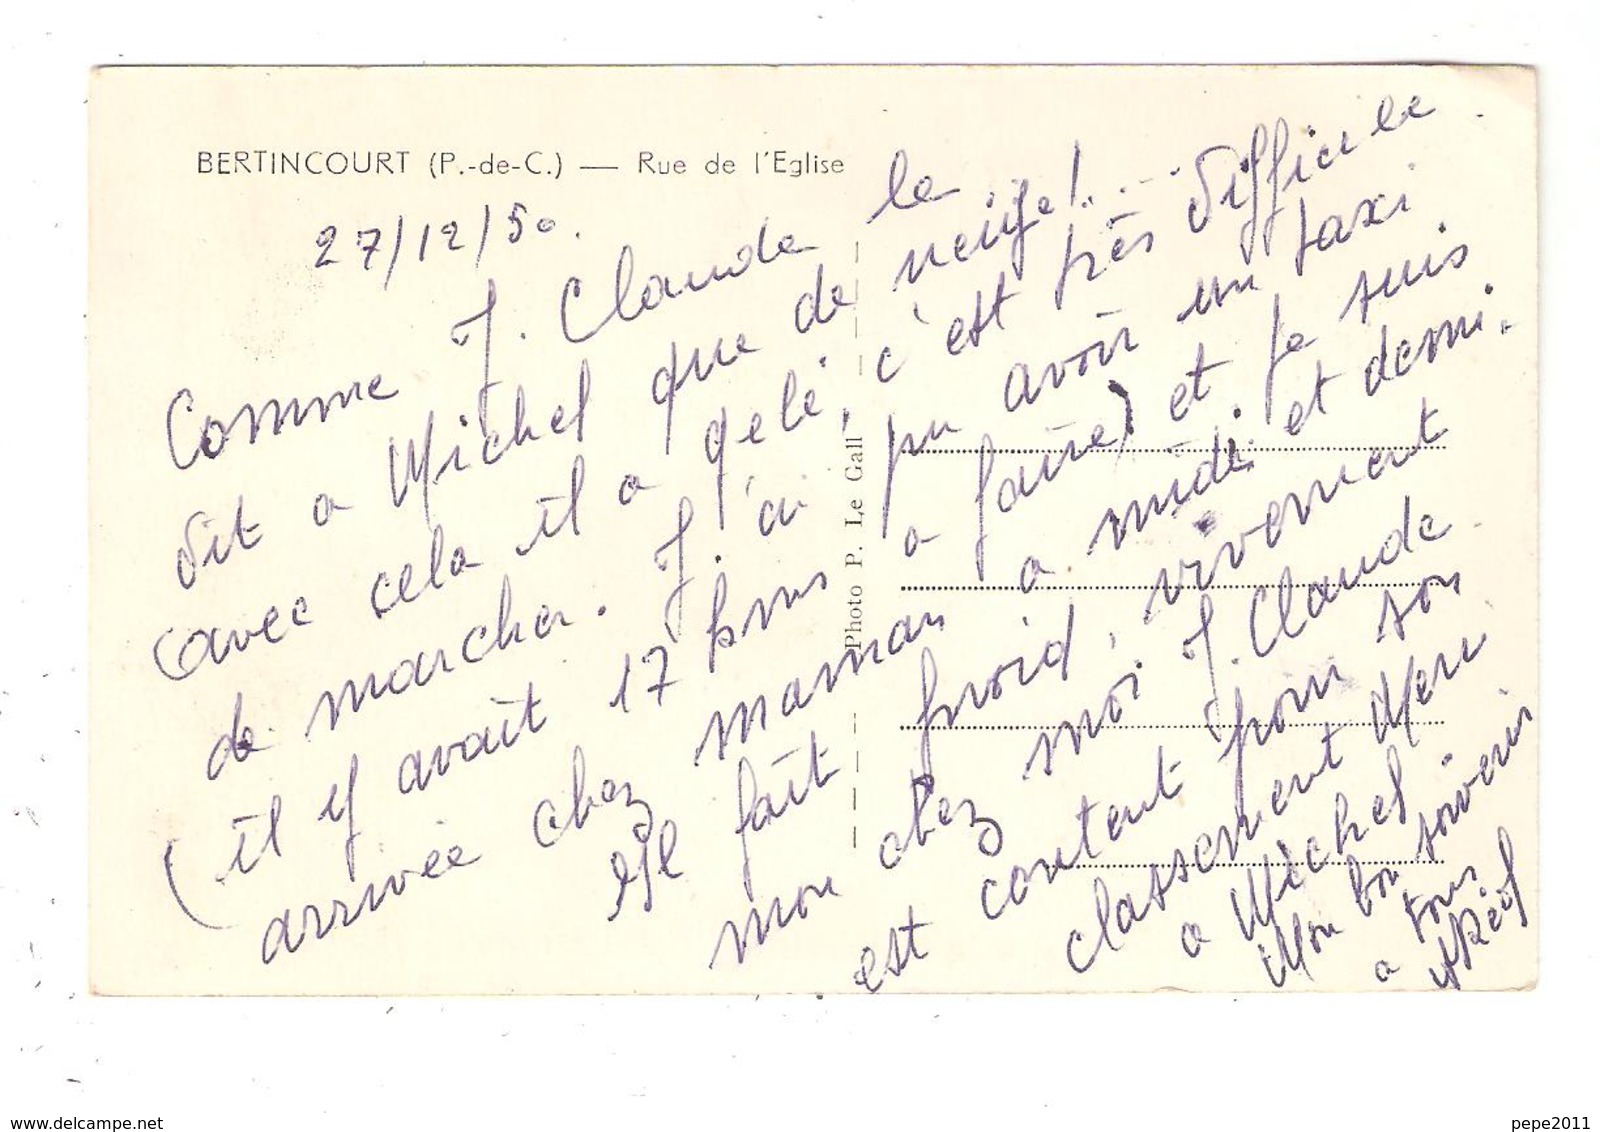 BERTINCOURT (P.-de-C.) — Rue de l'Eglise
27/12/50.
Comme J. Claude le
dit a Michel que de neige!....
avec cela il a gelé, c'est très difficile
de marcher. J'ai pu avoir un taxi
(il y avait 17 kms a faire) et je suis
arrivée chez maman a midi et demi.
Il fait froid, vivement
mon chez moi. J. Claude
est content pour son
classement Merci
a Michel
Mon bon souvenir
a tous
Photo P. Le Gall
www.delcampe.net
pepe2011